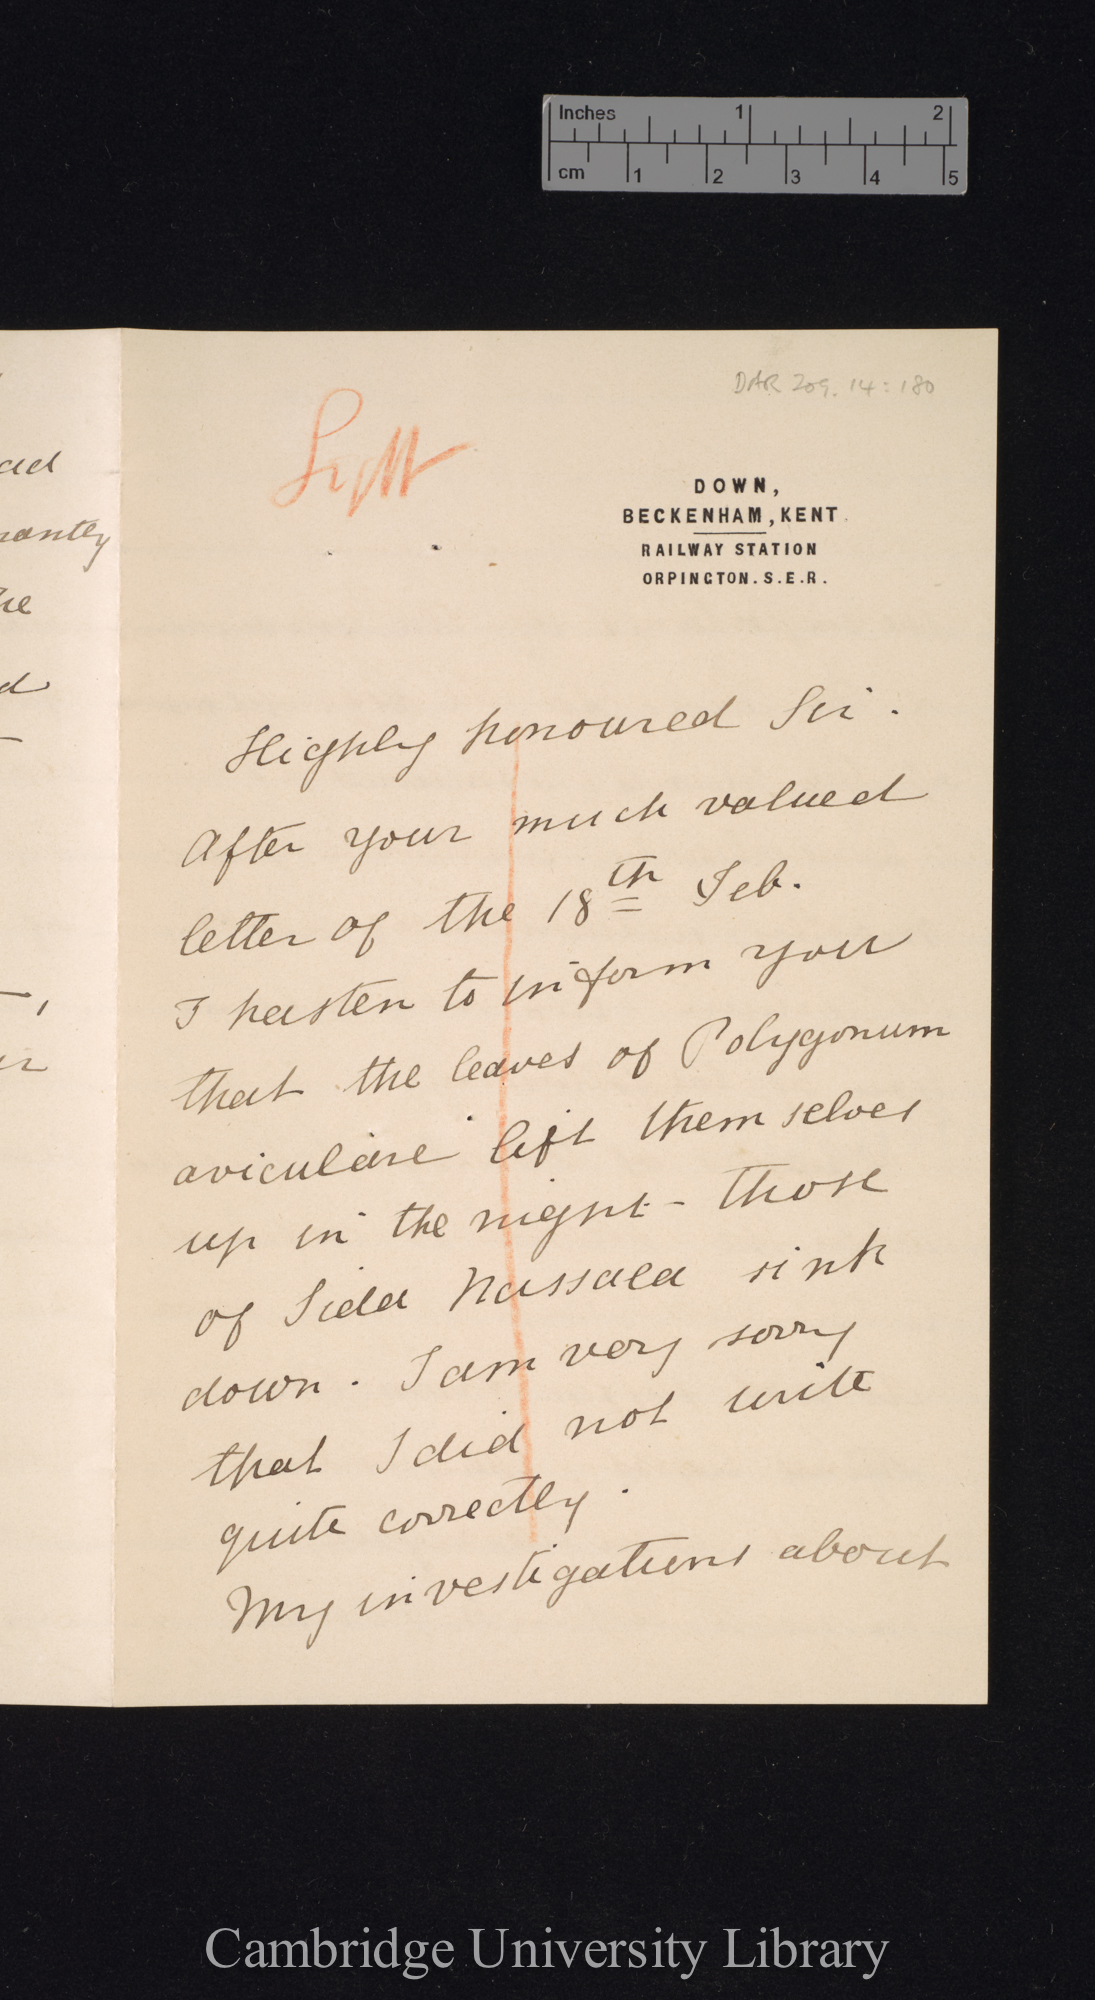 Inches 1 2
cm 1 2 3 4 5
DAR 209.14:180
Light
DOWN,
BECKENHAM, KENT.
RAILWAY STATION
ORPINGTON. S.E.R.
Highly honoured Sir.
After your much valued
letter of the 18th Feb.
I hasten to inform you
that the leaves of Polygonum
aviculare lift themselves
up in the night - those
of Sida sink
down. I am very sorry
that I did not write
quite correctly.
My investigations about
Cambridge University Library